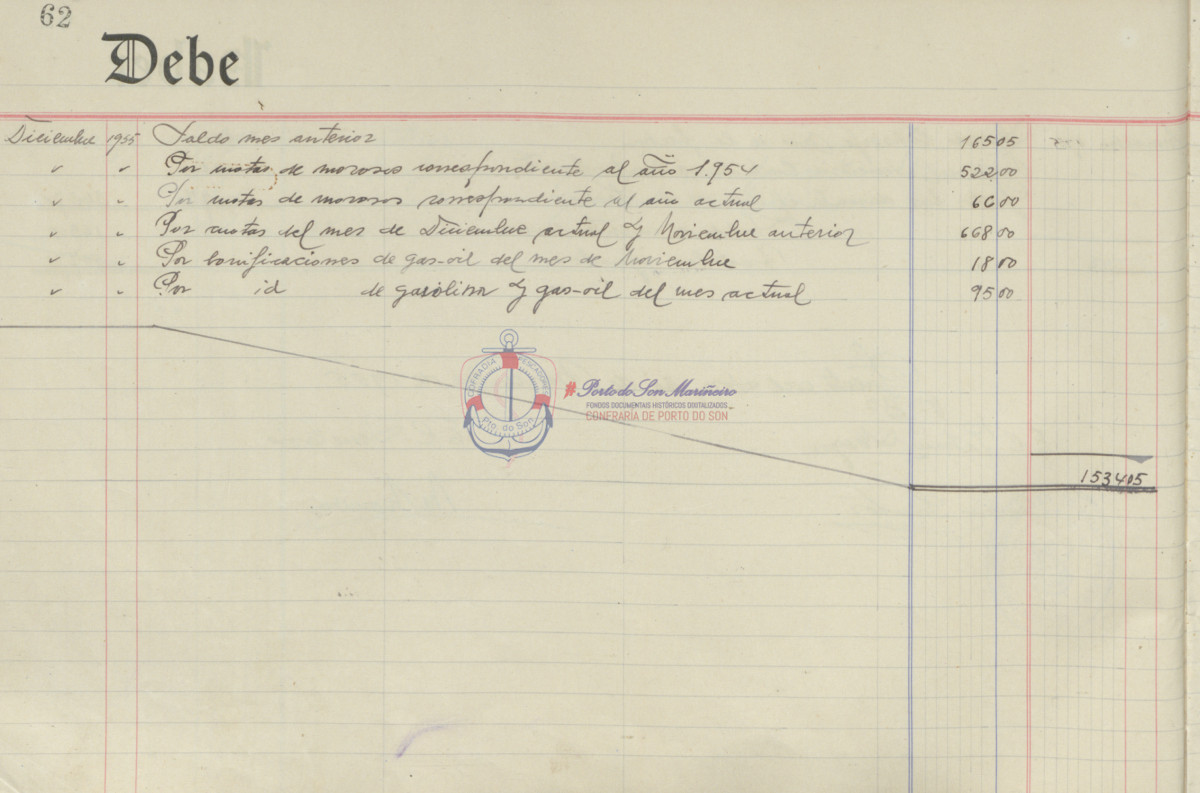 62
Debe
Diciembre 1955 Saldo mes anterior 165 05
" " Por cuotas de morosos correspondiente al año 1.954 522 00
" " Por cuotas de morosos correspondiente al año actual 66 00
" " Por cuotas del mes de Diciembre actual y Noviembre anterior 668 00
" " Por bonificaciones de gas-oil del mes de Noviembre 18 00
" " Por id de gasolina y gas-oil del mes actual 95 00
COFRADIA PESCADORES
Pto. do Son
#Porto do Son Mariñeiro
FONDOS DOCUMENTAIS HISTÓRICOS DIXITALIZADOS
CONFRARÍA DE PORTO DO SON
1534 05